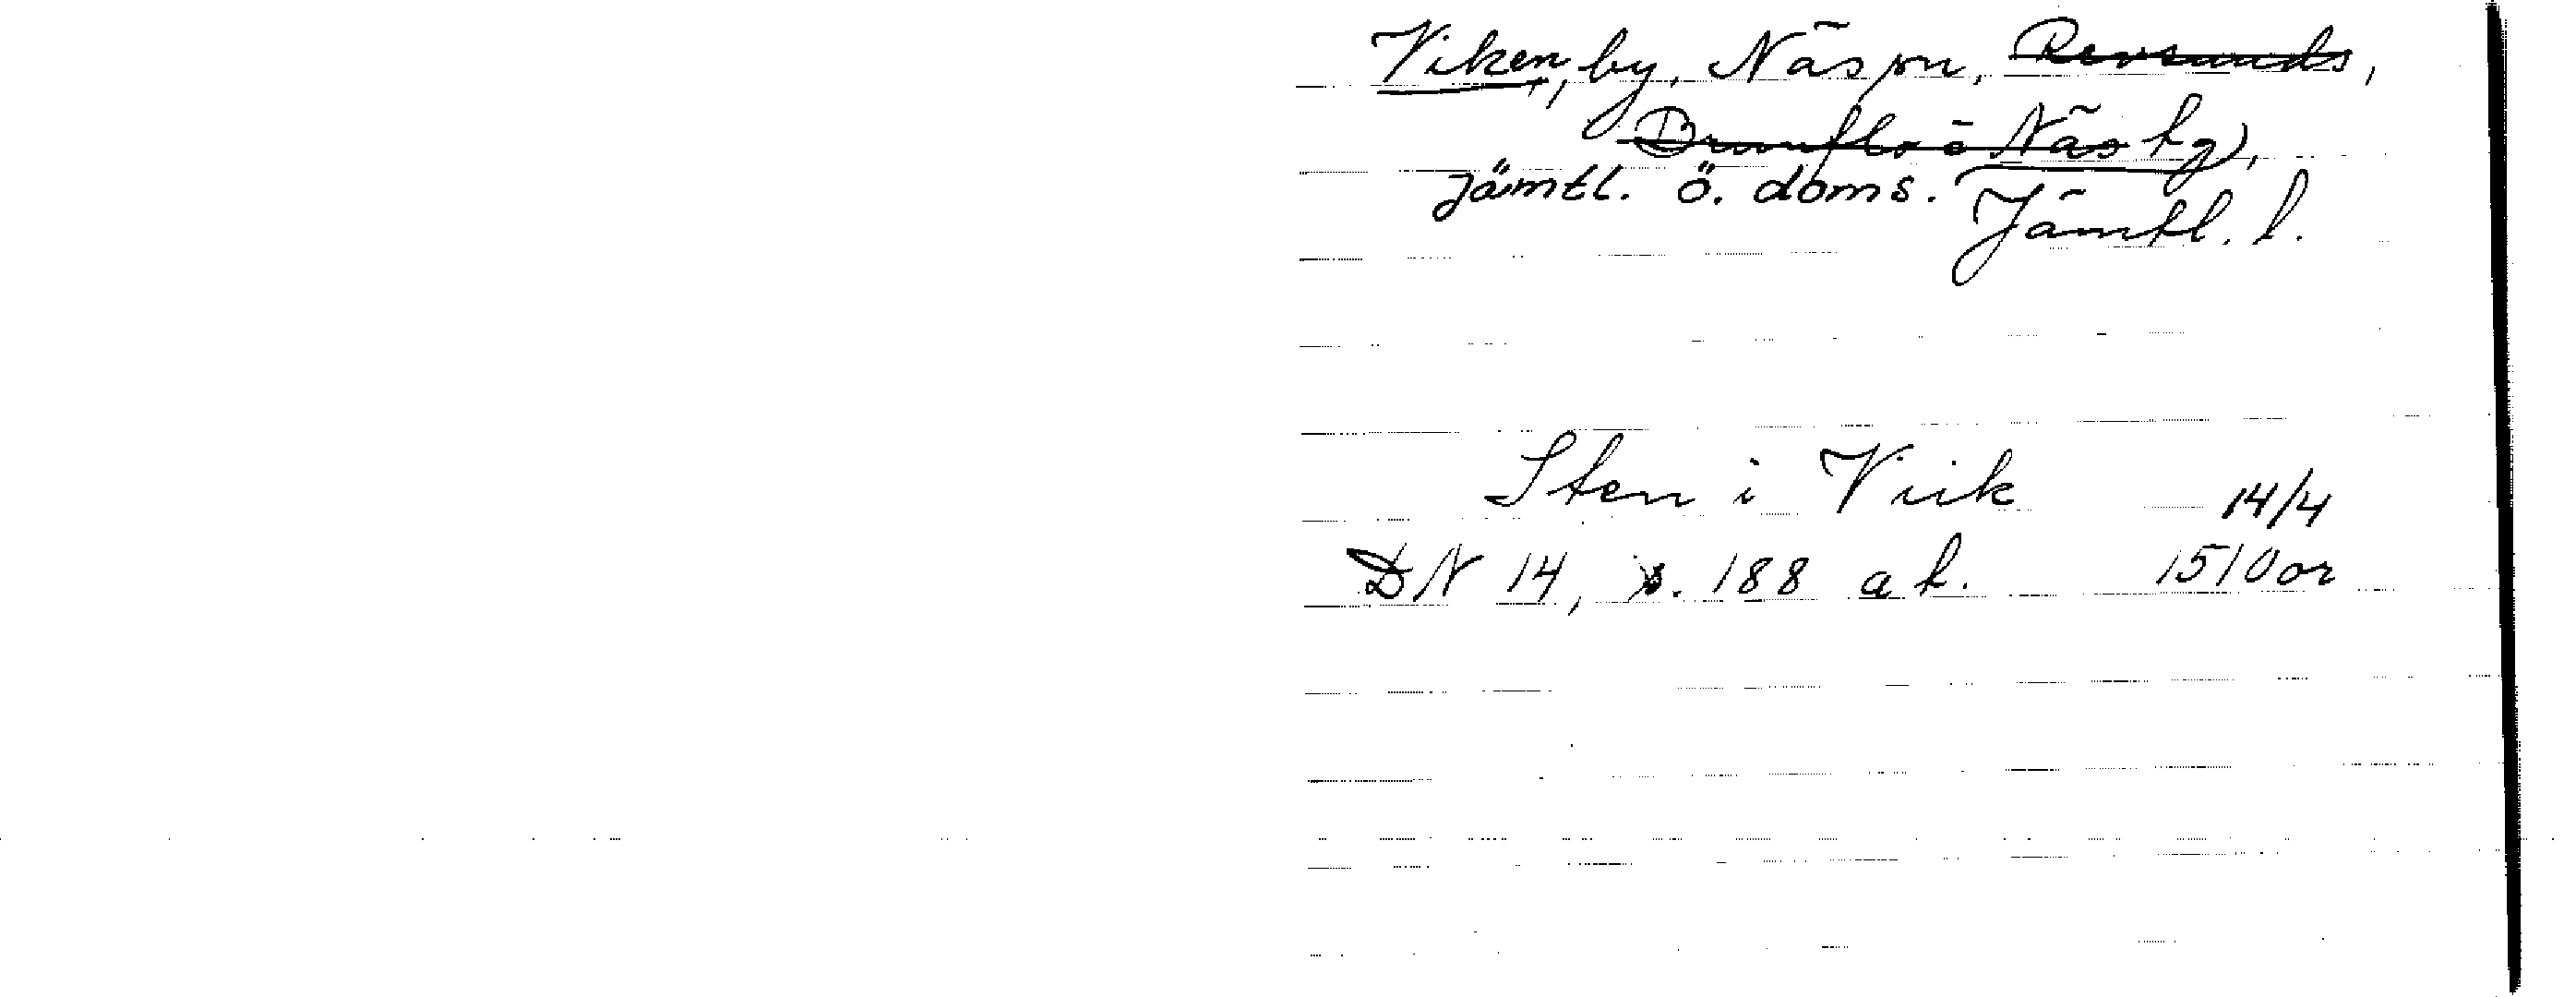 Viken, by, Näs sn, Revsunds,
Brunflo o Näs tg,
jämtl. ö. doms.
Jämtl. l.
Sten i Viik 14/4
DN 14, s. 188 a k. 1510 or